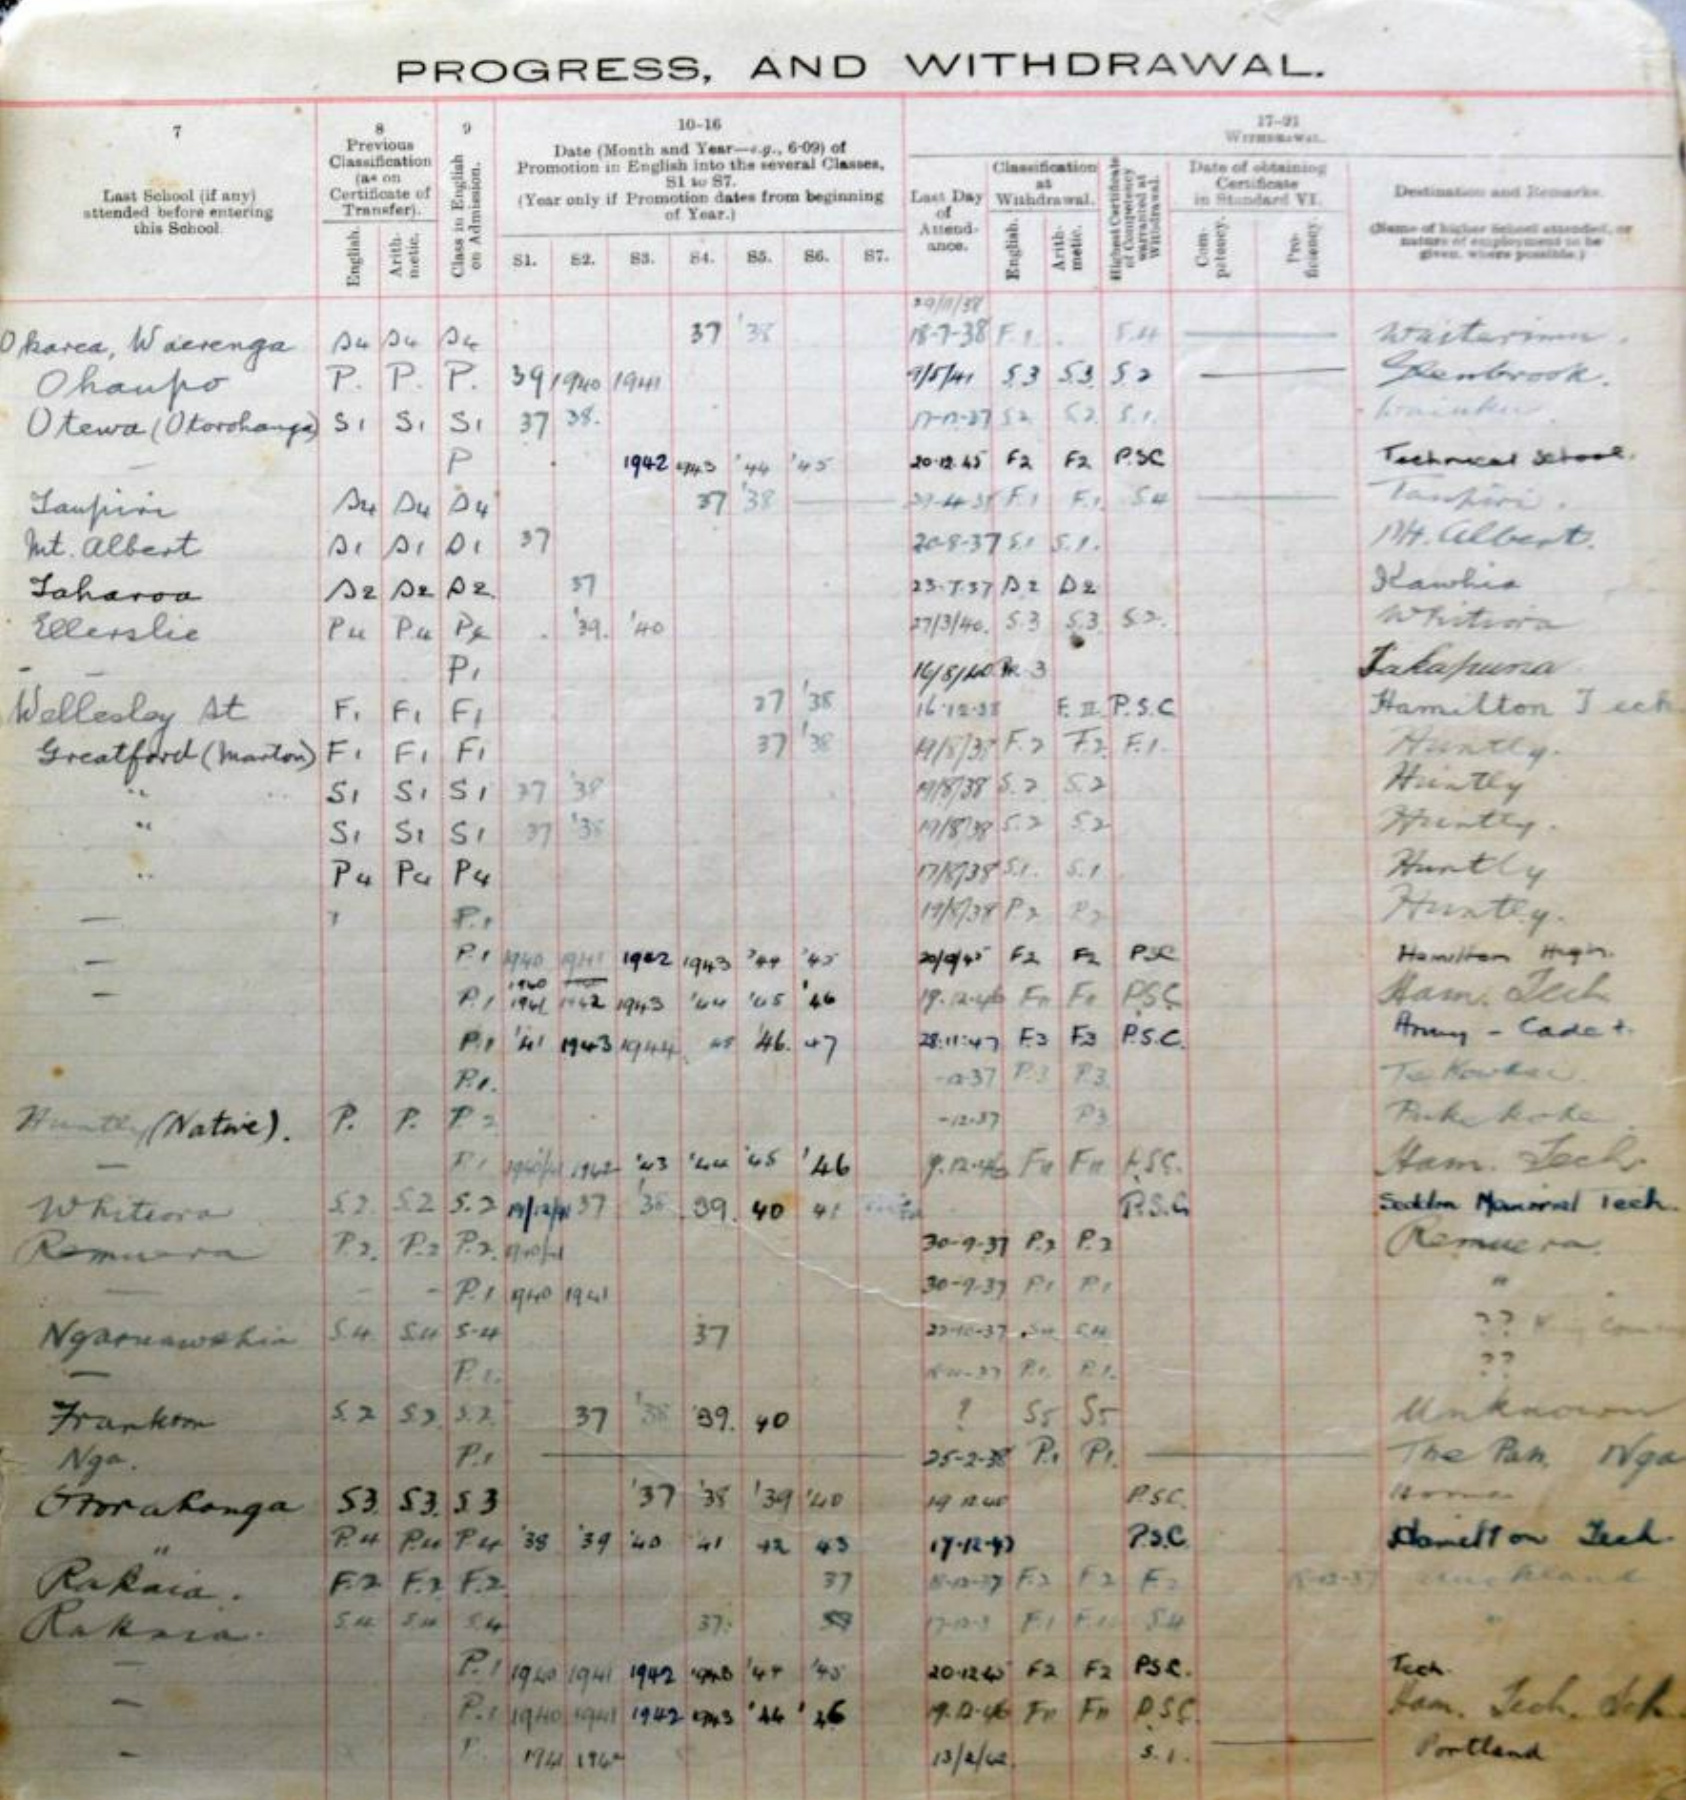 PROGRESS, AND WITHDRAWAL.
7 8 9 10-16 17-21
Last School (if any) attended before entering this School.
Previous Classification (as on Certificate of Transfer).
English. Arithmetic.
Class in English on Admission.
Date (Month and Year—e.g., 6-09) of Promotion in English into the several Classes, S1 to S7.
(Year only if Promotion dates from beginning of Year.)
S1. S2. S3. S4. S5. S6. S7.
WITHDRAWAL.
Last Day of Attendance.
Classification at Withdrawal.
English. Arithmetic.
Highest Certificate of Competency warranted at Withdrawal.
Date of obtaining Certificate in Standard VI.
Competency. Proficiency.
Destination and Remarks.
(Name of higher School attended, or nature of employment to be given, where possible.)
29/11/38
Okarea, Waerenga S4 S4 S4 37 '38 18-7-38 F.1 S.4
Ohaupo P. P. P. 39 1940 1941 9/5/41 S.3 S.3 S.2 Glenbrook.
Otewa (Otorohanga) S1 S1 S1 37 38. S2 S2. S.1.
P 1942 1943 '44 '45 20.12.45 F2 F2 P.SC Technical School.
Taupiri S4 S4 S4 37 '38 F.1 F.1 S4 Taupiri.
Mt. Albert S1 S1 S1 37 20-8-37 S.1 S.1. Mt. Albert.
Taharoa S2 S2 S2 37 23.7.37 S2 S2 Kawhia
Ellerslie P4 P4 P4 '39. '40 27/3/40. S.3 S.3 S2. Whitiora
- P1 16/8/40 Pr 3 Takapuna
Wellesley St F1 F1 F1 37 '38 16.12.38 F.II P.S.C Hamilton Tech
Greatford (Marton) F1 F1 F1 37 '38 19/8/38 F.2 F.2 F.1. Huntly.
" S1 S1 S1 37 '38 19/8/38 S.2 S.2 Huntly
" S1 S1 S1 37 '38 19/8/38 S.2 S.2 Huntly.
" P4 P4 P4 17/8/38 S.1. S.1 Huntly
— P.1 19/8/38 P2 P2 Huntly.
— P.1 1940 1941 1942 1943 '44 '45 20/9/45 F2 F2 PSC Hamilton High.
1940
— P.1 1941 1942 1943 '44 '45 '46 19.12.46 FII FII P.S.C Ham. Tech
P.1 '41 1943 1944 45 '46. 47 28:11:47 F.3 F3 P.S.C. Army - Cadet.
P.1. P.3 P.3.
Huntly (Native). P. P. P 2 -12-37 P3
— P.1 1942 '43 '44 '45 '46 9.12.46 FII FII P.SC. Ham. Tech.
Whitiora S.2. S.2 S.2 37 '38 39. 40 41 P.S.C Seddon Memorial Tech.
Remuera P.2. P.2 P.2. 30-9-37 P.2 P.2 Remuera.
— - - P.1 1940 1941 30-9-37 P.1 P.1 "
Ngaruawahia S.4. S.4 S-4 37 S4 S.4 ??
— P.1. P.1. P.1. ??
Frankton S.2 S.2 S.2 37 '38 '39. 40 ? S5 S5 Unknown
Nga. P.1 25-2-38 P.1 P1. The Pah, Nga
Otorohanga S3 S3 S3 '37 '38 '39 '40 19.12.40 P.S.C.
" P.4 P.4 P4 '38 '39 '40 '41 42 43 17.12.43 P.S.C. Hamilton Tech.
Rakaia. F.2 F.2 F.2. 37 F.2 F2 F2 Auckland
Rakaia. S.4 S.4 S.4 37. F.1 F.1 S4 "
— P.1 1940 1941 1942 1943 '44 '45 20.12.45 F2 F2 PSC. Tech.
— P.1 1940 1941 1942 1943 '44 '46 19.12.46 FII FII P.SC. Ham. Tech. Sch.
- P. 1941 1942 13/2/42. S.1. Portland